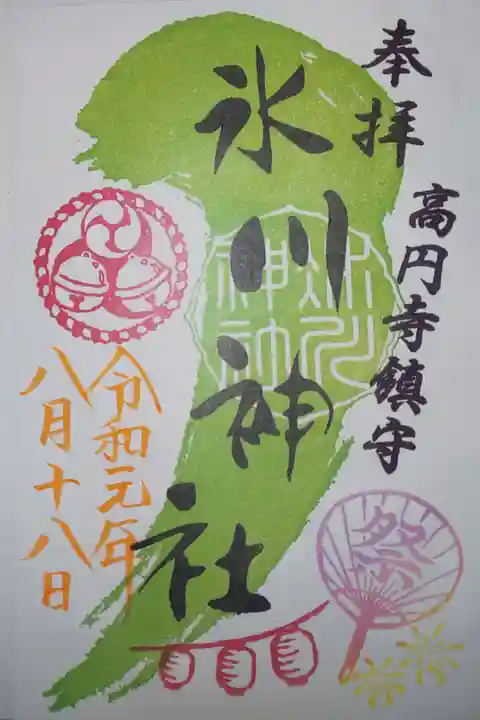 奉拝
高円寺鎮守
氷川神社
氷川
神社
令和元年
八月十八日
祭